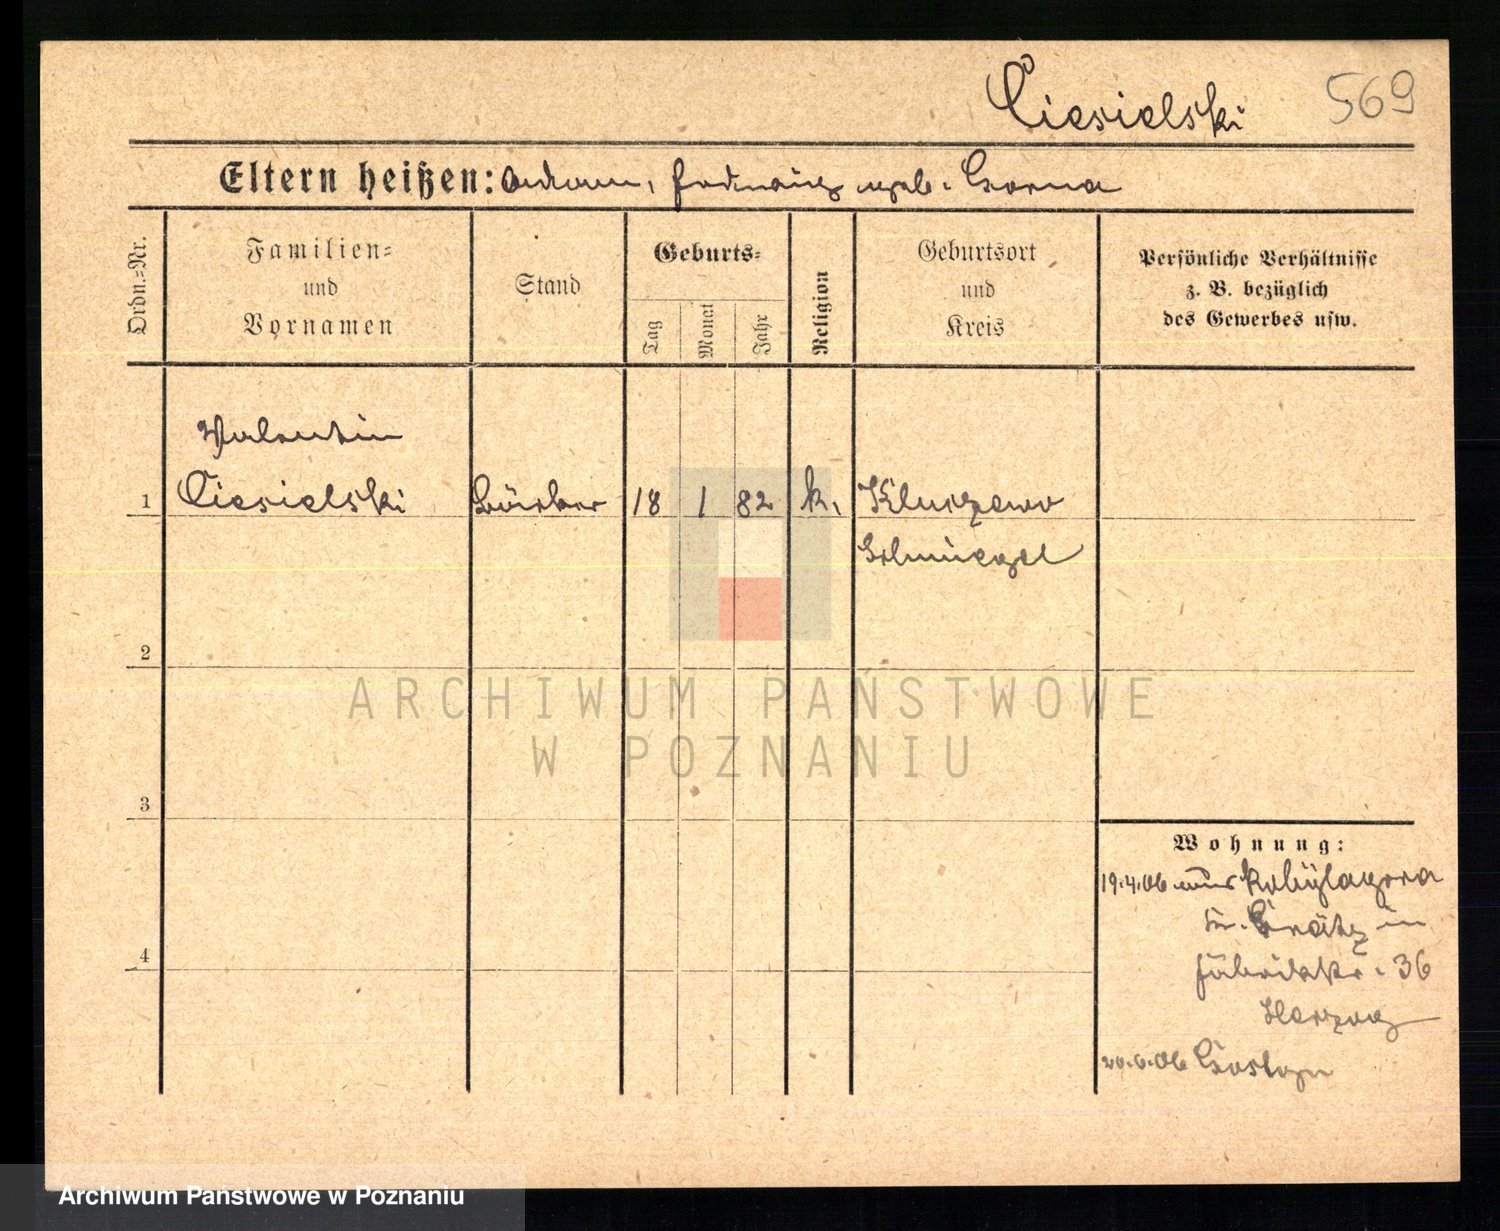 Ciesielski 569
Eltern heißen: Andreas, Hedwig geb. Gorna
Ordn.=Nr.
Familien=
und
Vornamen
Stand
Geburts=
Tag
Monat
Jahr
Religion
Geburtsort
und
Kreis
Persönliche Verhältnisse
z. B. bezüglich
des Gewerbes usw.
Valentin
1 Ciesielski Bäcker 18 1 82 k. Kluczewo
Schmiegel
2
3
4
Wohnung:
19.4.06 aus Kobylagora
Kr. Grätz in
36
Herzog
06 Gostyn
ARCHIWUM PAŃSTWOWE
W POZNANIU
Archiwum Państwowe w Poznaniu